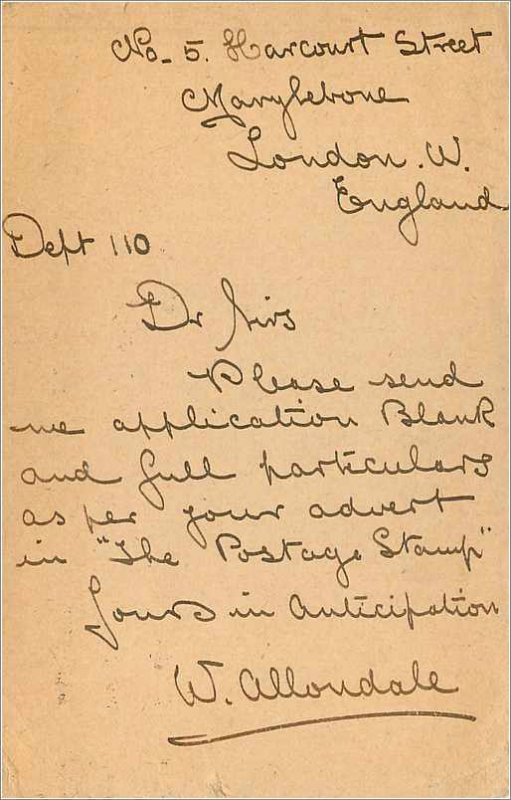 No. 5. Harcourt Street
Marylebone
London. W.
England
Dept 110
Dr Sirs
Please send
me application Blank
and full particulars
as per your advert
in "The Postage Stamp"
Yours in Anticipation
W. Allondale